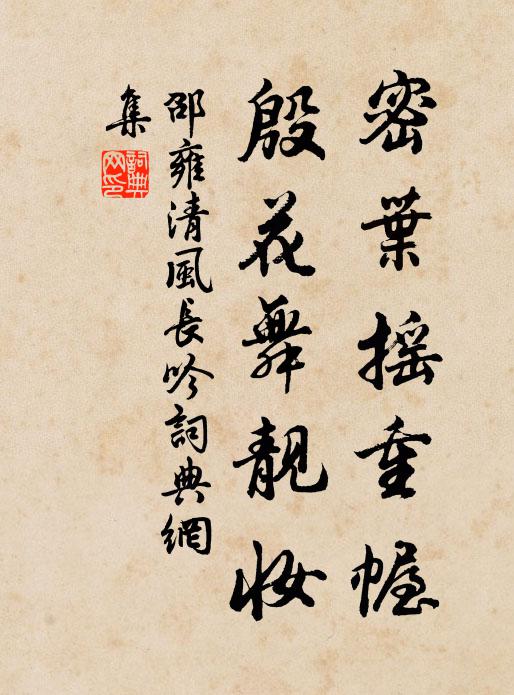 密葉搖重幄
殷花舞靚妝
邵雍清風長吟詞典網
集
詞典
网印